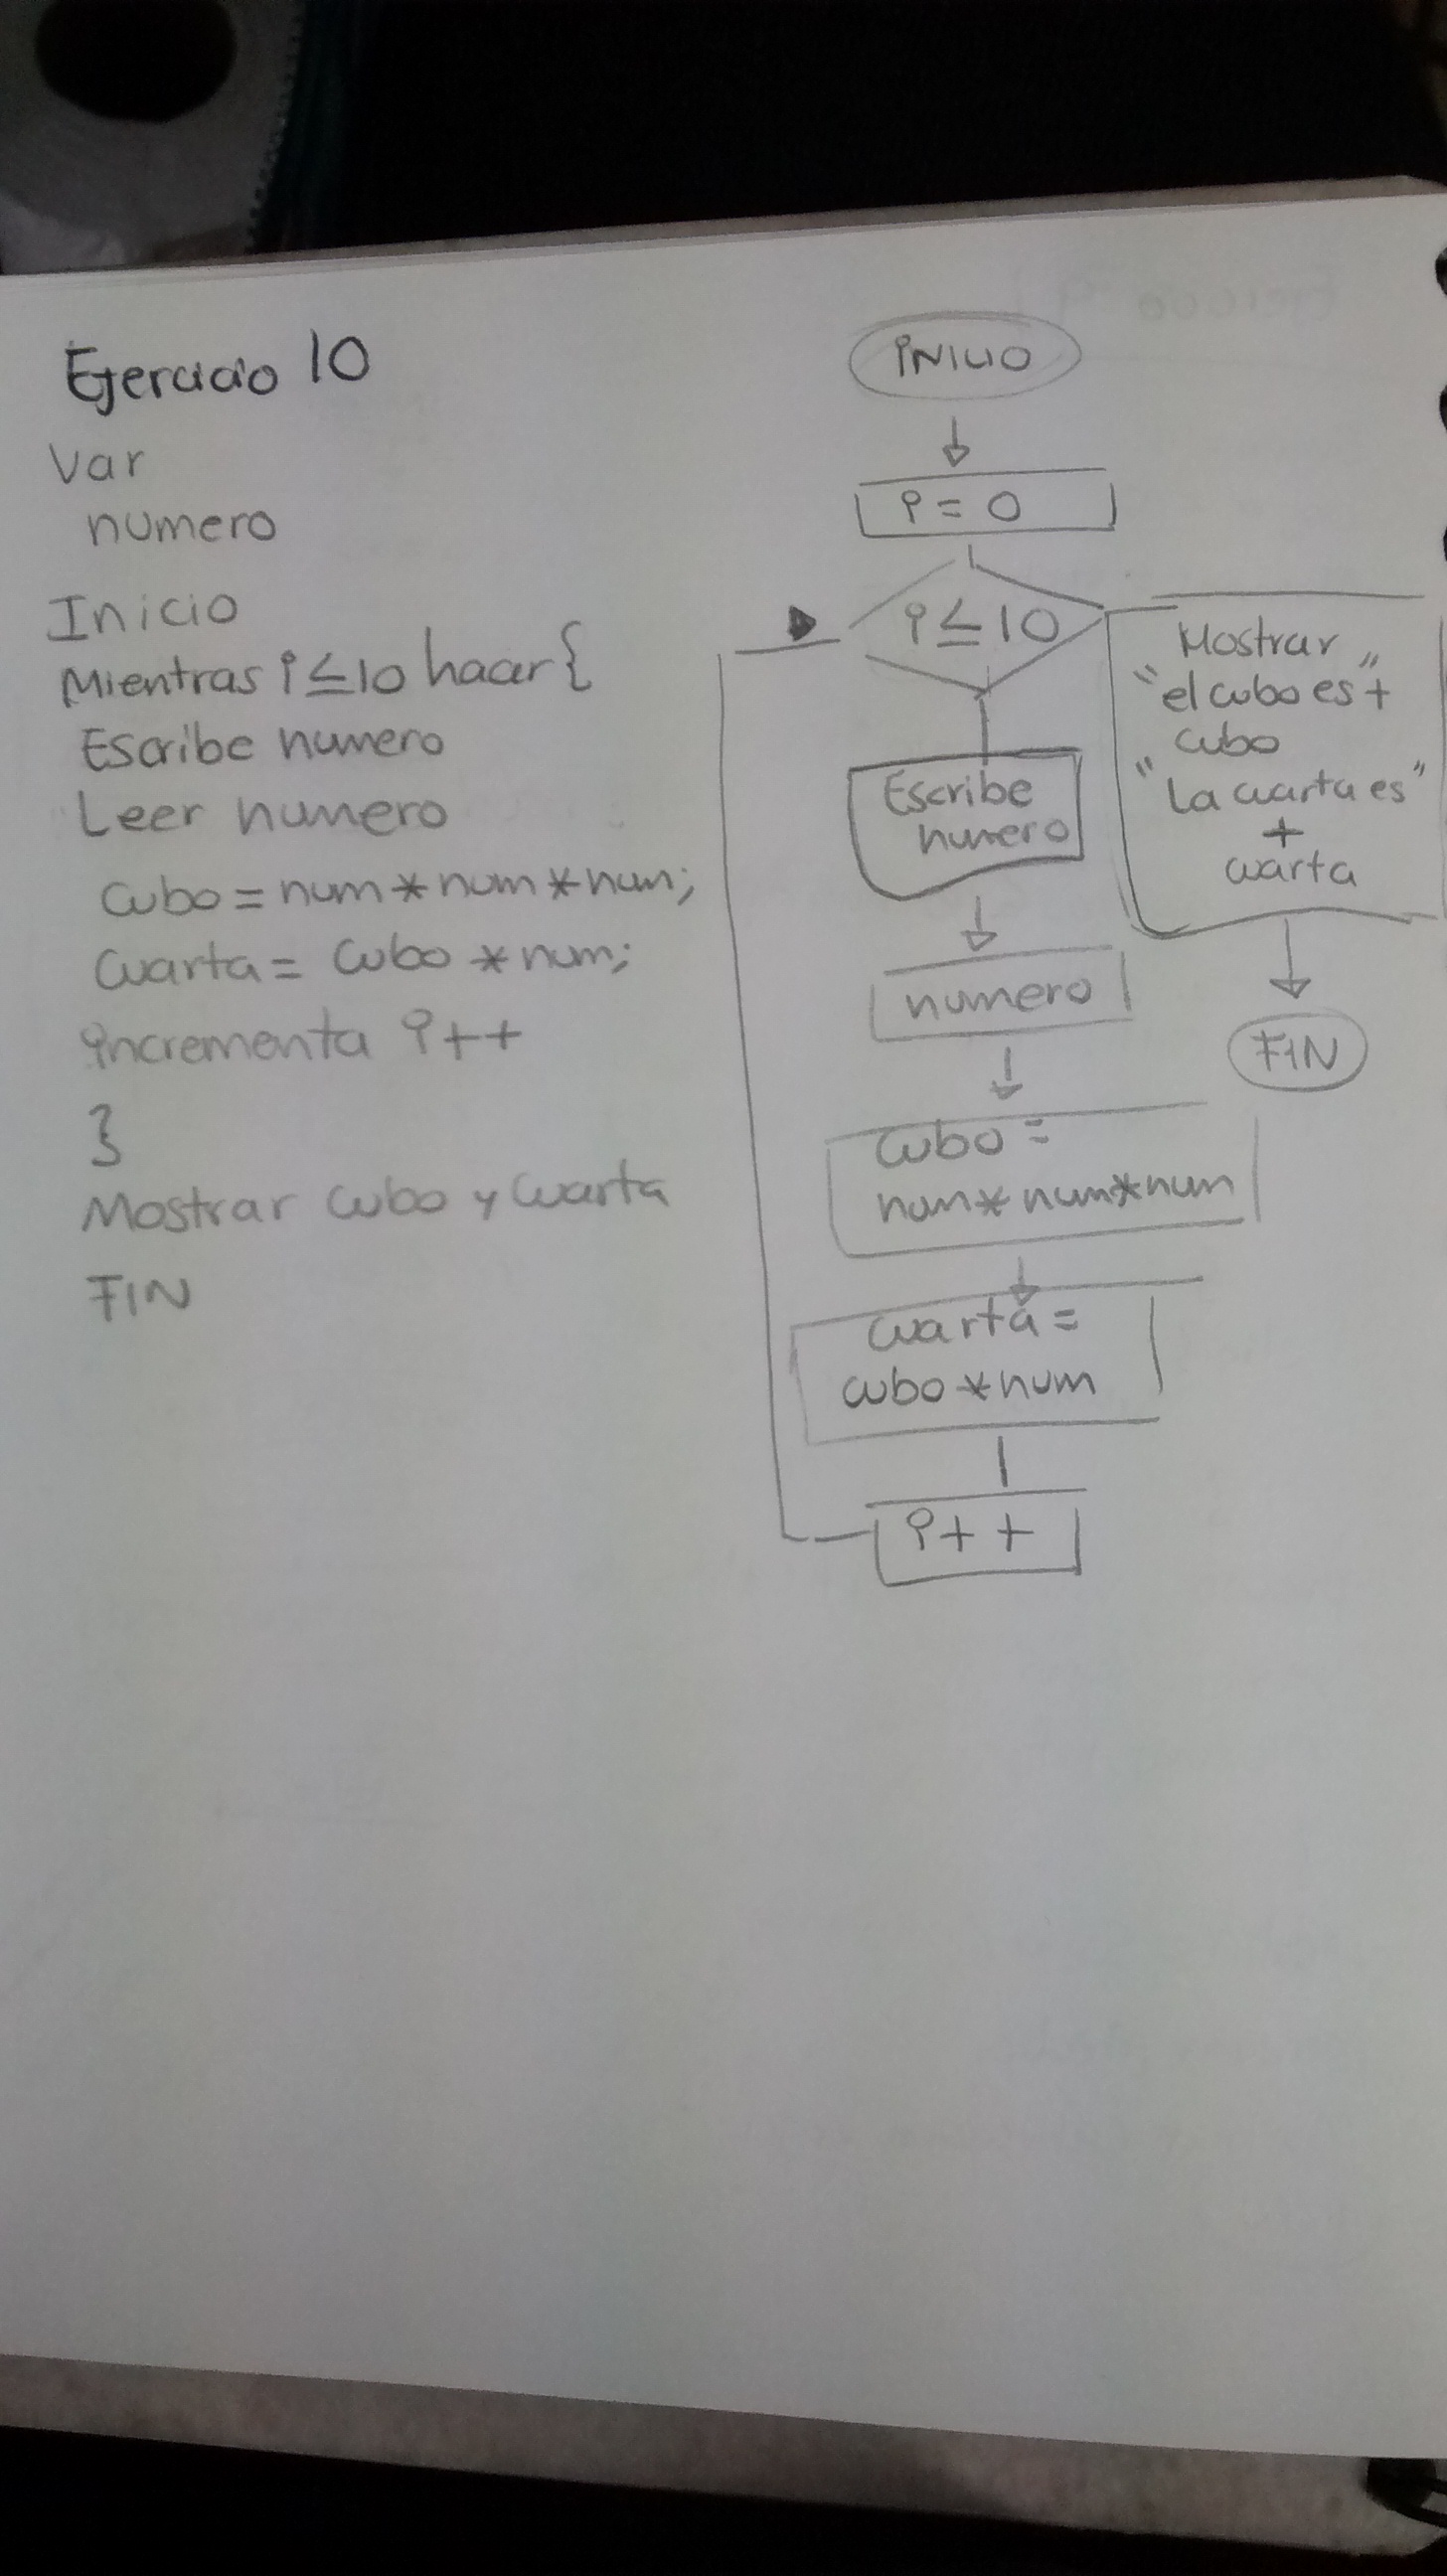 Ejercicio 10
Var
numero
Inicio
Mientras i≤10 hacer{
Escribe numero
Leer numero
cubo=num*num*num;
cuarta= cubo *num;
incrementa i++
}
Mostrar cubo y cuarta
FIN
iNICIO
i= 0
i≤10
Escribe
numero
numero
cubo =
num* num*num
cuarta=
cubo*num
i++
Mostrar
"el cubo es"+
cubo
"La cuarta es"
+
cuarta
FIN